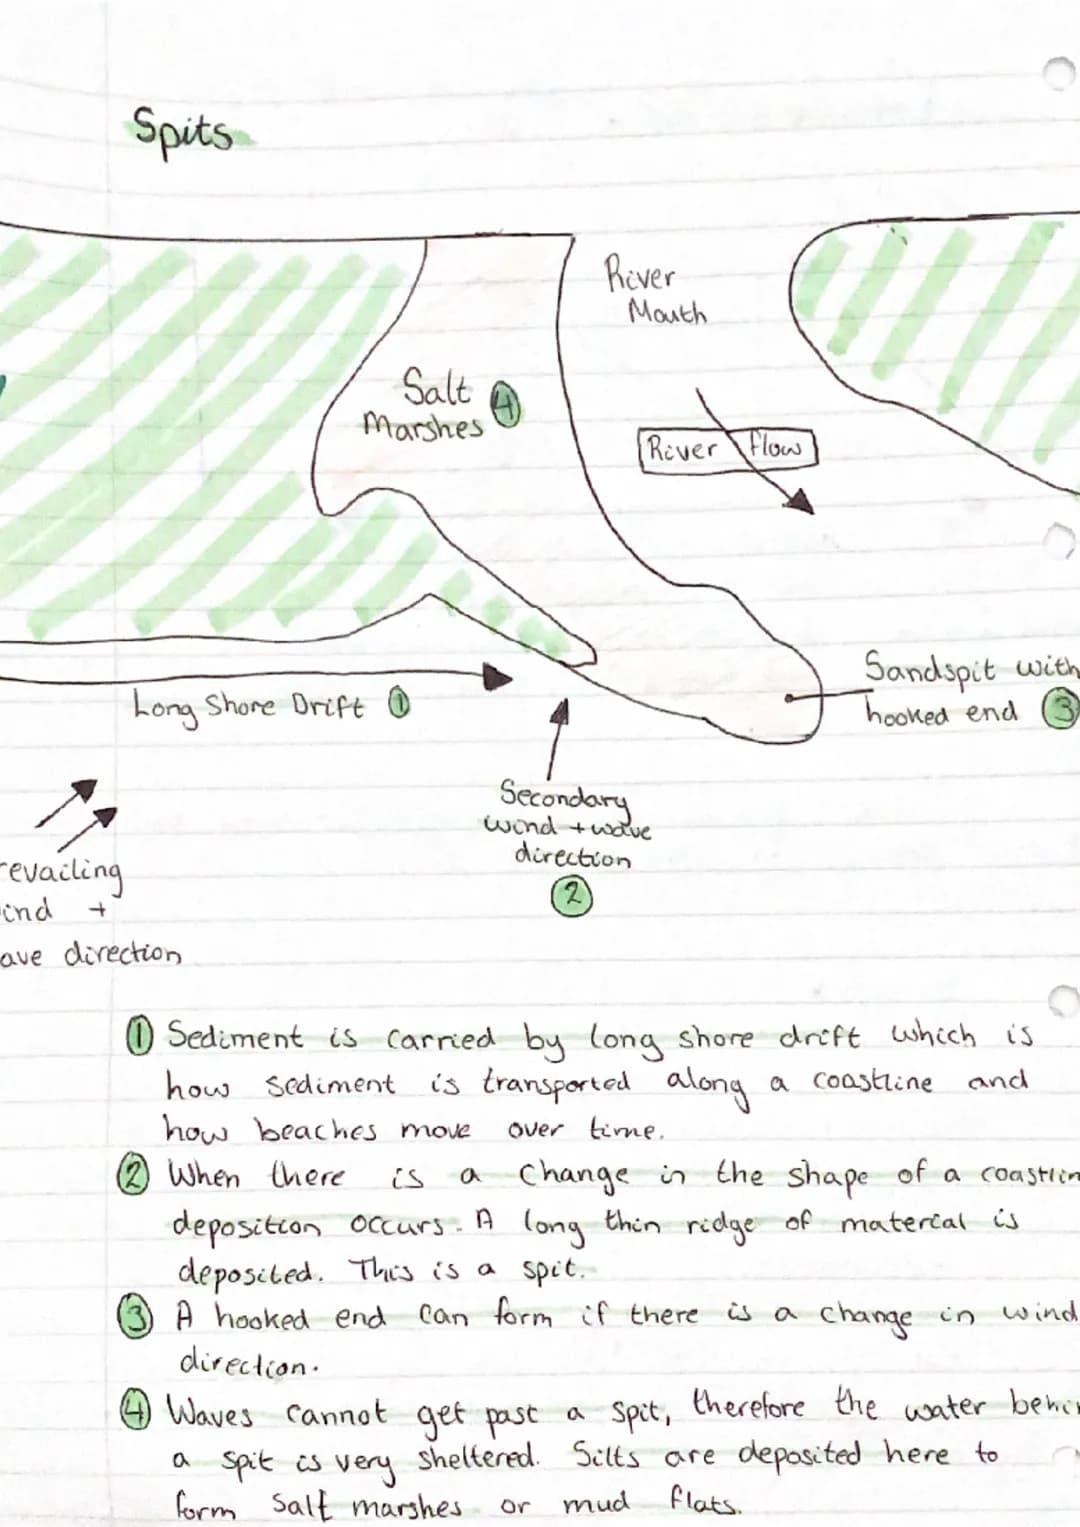 Spits
River
Mouth
Salt
Marshes 4
River flow
Sandspit with
hooked end 3
Long Shore Drift 1
Secondary
wind + wave
direction
2
revailing
ind +
ave direction
1 Sediment is carried by long shore drift which is
how sediment is transported along a coastline and
how beaches move over time.
2 When there is a change in the shape of a coastlin
deposition occurs. A long thin ridge of material is
deposited. This is a spit.
3 A hooked end can form if there is a change in wind
direction.
4 Waves cannot get past a spit, therefore the water behin
a spit is very sheltered. Silts are deposited here to
form salt marshes or mud flats.